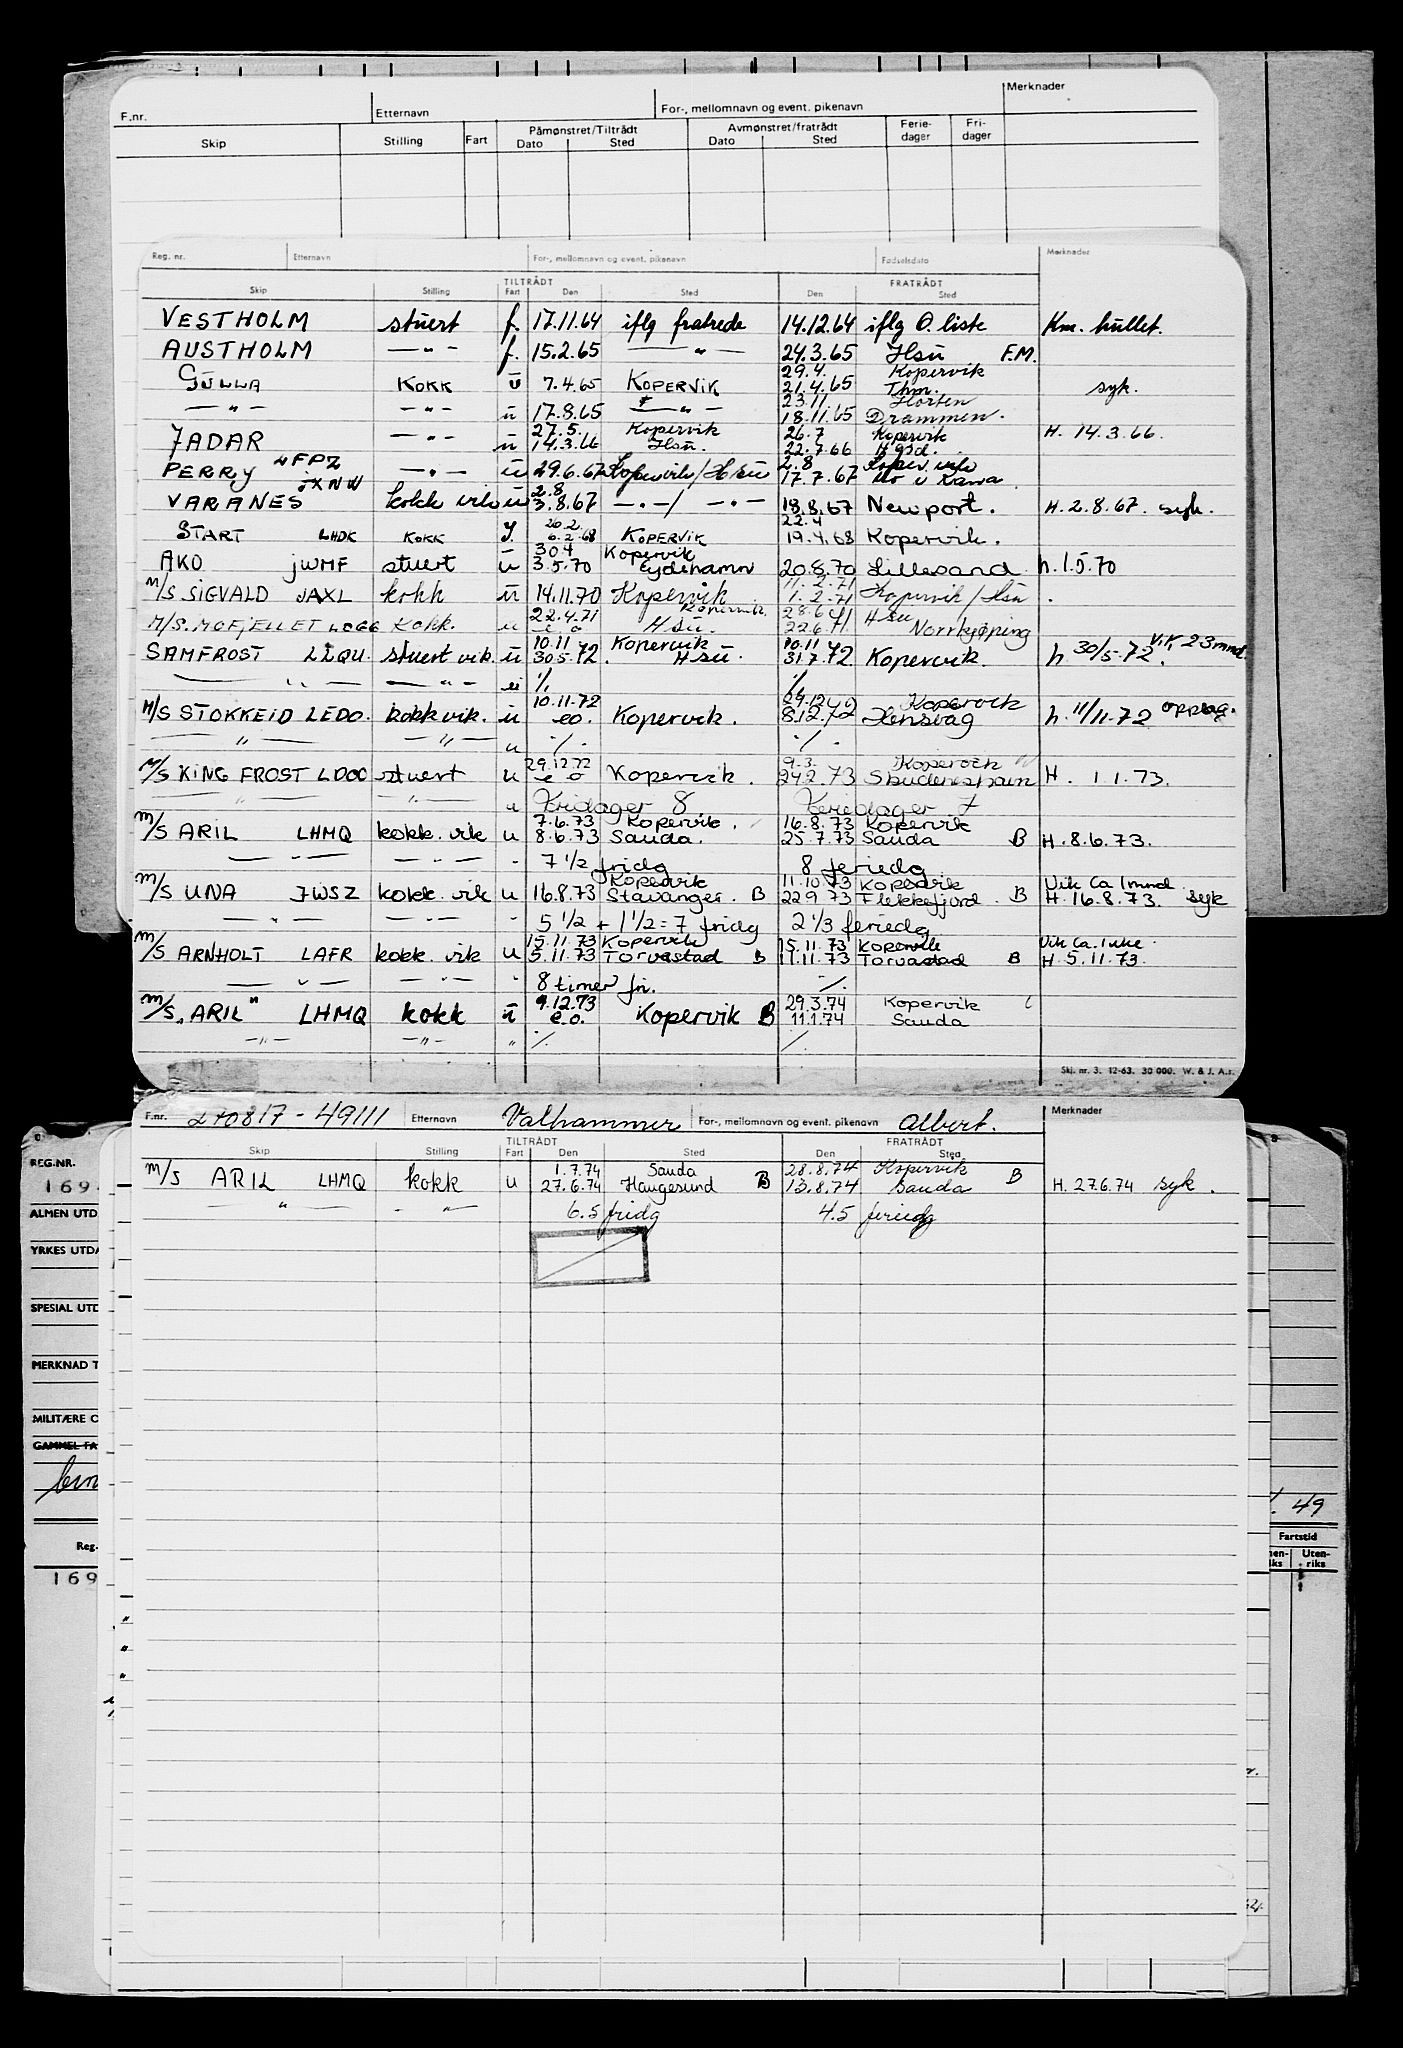 F.nr. Etternavn For-, mellomnavn og event. pikenavn Merknader
Skip Stilling Fart Påmønstret/Tiltrådt Avmønstret/fratrådt Ferie-dager Fri-dager
Dato Sted Dato Sted
Reg. nr. Etternavn For-, mellomnavn og event. pikenavn Fødselsdato Merknader
TILTRÅDT FRATRÅDT
Skip Stilling Fart Den Sted Den Sted
VESTHOLM stuert f. 17.11.64 iflg fratrede 14.12.64 iflg O. liste Km. hullet.
AUSTHOLM —"— f. 15.2.65 —"— 24.3.65 Hsu F.M.
29.4. Kopervik
GULLA KOKK u 7.4.65 KOPERVIK 21.4.65 Thm. syk.
23.11 Horten
—"— —"— u 17.8.65 —"— 18.11.65 Drammen.
27.5. Kopervik 26.7 Kopervik
JADAR —"— u 14.3.66 Hsu. 22.7.66 H. 14.3.66.
2.8
PERRY LFPZ —"— u 29.6.67 Kopervik/Hsu 17.7.67 Mo i Rana
JXNW 2.8
VARANES kokk vik u 3.8.67 —"—/—"— 18.8.67 Newport. H. 2.8.67. syk.
20.2 22.4
START LHDK KOKK 6.2.68 KOPERVIK 19.4.68 Kopervik.
30.4 Kopervik
AKO JWMF stuert u 3.5.70 Eydehamn 20.8.70 Lillesand h. 1.5.70
11.2.71
M/S SIGVALD JAXL kokk u 14.11.70 Kopervik 1.2.71 Kopervik/Hsu
22.4.71 Kopervik 28.6.71 Hsu
M/S. MOFJELLET LDGG kokk. u e o Hsu. 22.6.71 Norrkjøping
10.11 Kopervik 10.11
SAMFROST LLQU stuert vik. u 30.5.72. Hsu. 31.7.72 Kopervik. h. 30/5-72. Vik, 23 mnd
—"— —"— u ./. ./.
10.11.72 29.12 Kopervik
M/S STOKKEID LEDO. kokk vik. u eo. Kopervik. 8.12.72 h. 11/11-72 opplag.
—"— —"— u ./. ./.
29.12.72 9.3. Kopervik
M/S KING FROST LDOC stuert u e o Kopervik. 24.2.73 Skudeneshavn H. 1.1.73.
—"— —"— u Fridager 8 Feriedager 7
7.6.73 Kopervik 16.8.73 Kopervik
M/S ARIL LHMQ kokk. vik u 8.6.73 Sauda. 25.7.73 Sauda B H. 8.6.73.
—"— —"— " 7 1/2 fridg 8 feriedg
Kopervik 11.10.73 Kopervik Vik Ca 1 mnd
M/S UNA JWSZ kokk. vik u 16.8.73 Stavanger. B 22.9.73 Flekkefjord. B H. 16.8.73. syk
—"— —"— " 5 1/2 + 1 1/2 = 7 fridg 2 1/3 feriedg
15.11.73 Kopervik 15.11.73 Kopervik Vik Ca. 1 uke.
M/S ARNHOLT LAFR kokk. vik u 5.11.73 Torvastad B 11.11.73 Torvastad B H. 5.11.73.
—"— —"— " 8 timer fri. ./.
9.12.73 29.3.74 Kopervik
M/S "ARIL" LHMQ kokk u e.o. Kopervik B 11.1.74 Sauda
—"— —"— " ./. ./.
Skj. nr. 3. 12-63. 30 000. W. & J. A.s
F.nr. 240817-49111 Etternavn Valhammer For-, mellomnavn og event. pikenavn Albert. Merknader
TILTRÅDT FRATRÅDT
Skip Stilling Fart Den Sted Den Sted
1.7.74 Sauda 28.8.74 Kopervik
M/S ARIL LHMQ kokk u 27.6.74 Haugesund B 13.8.74 Sauda B H. 27.6.74 syk.
—"— —"— 6.5 fridg 4.5 feriedg
REG.NR.
169
ALMEN UTD
YRKES UTDA
SPESIAL UTD
MERKNAD T
MILITÆRE O
GAMMEL FA
Reg.
169
. 49
Fartstid
nen-iks Uten-riks